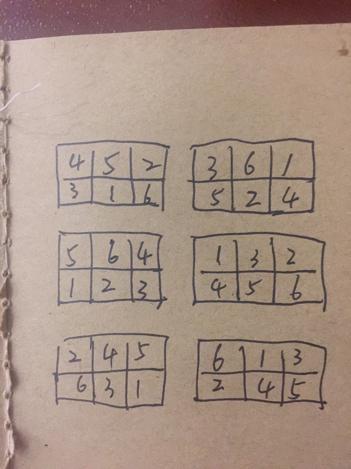 4 5 2 3 6 1
3 1 6 5 2 4
5 6 4 1 3 2
1 2 3 4 5 6
2 4 5 6 1 3
6 3 1 2 4 5